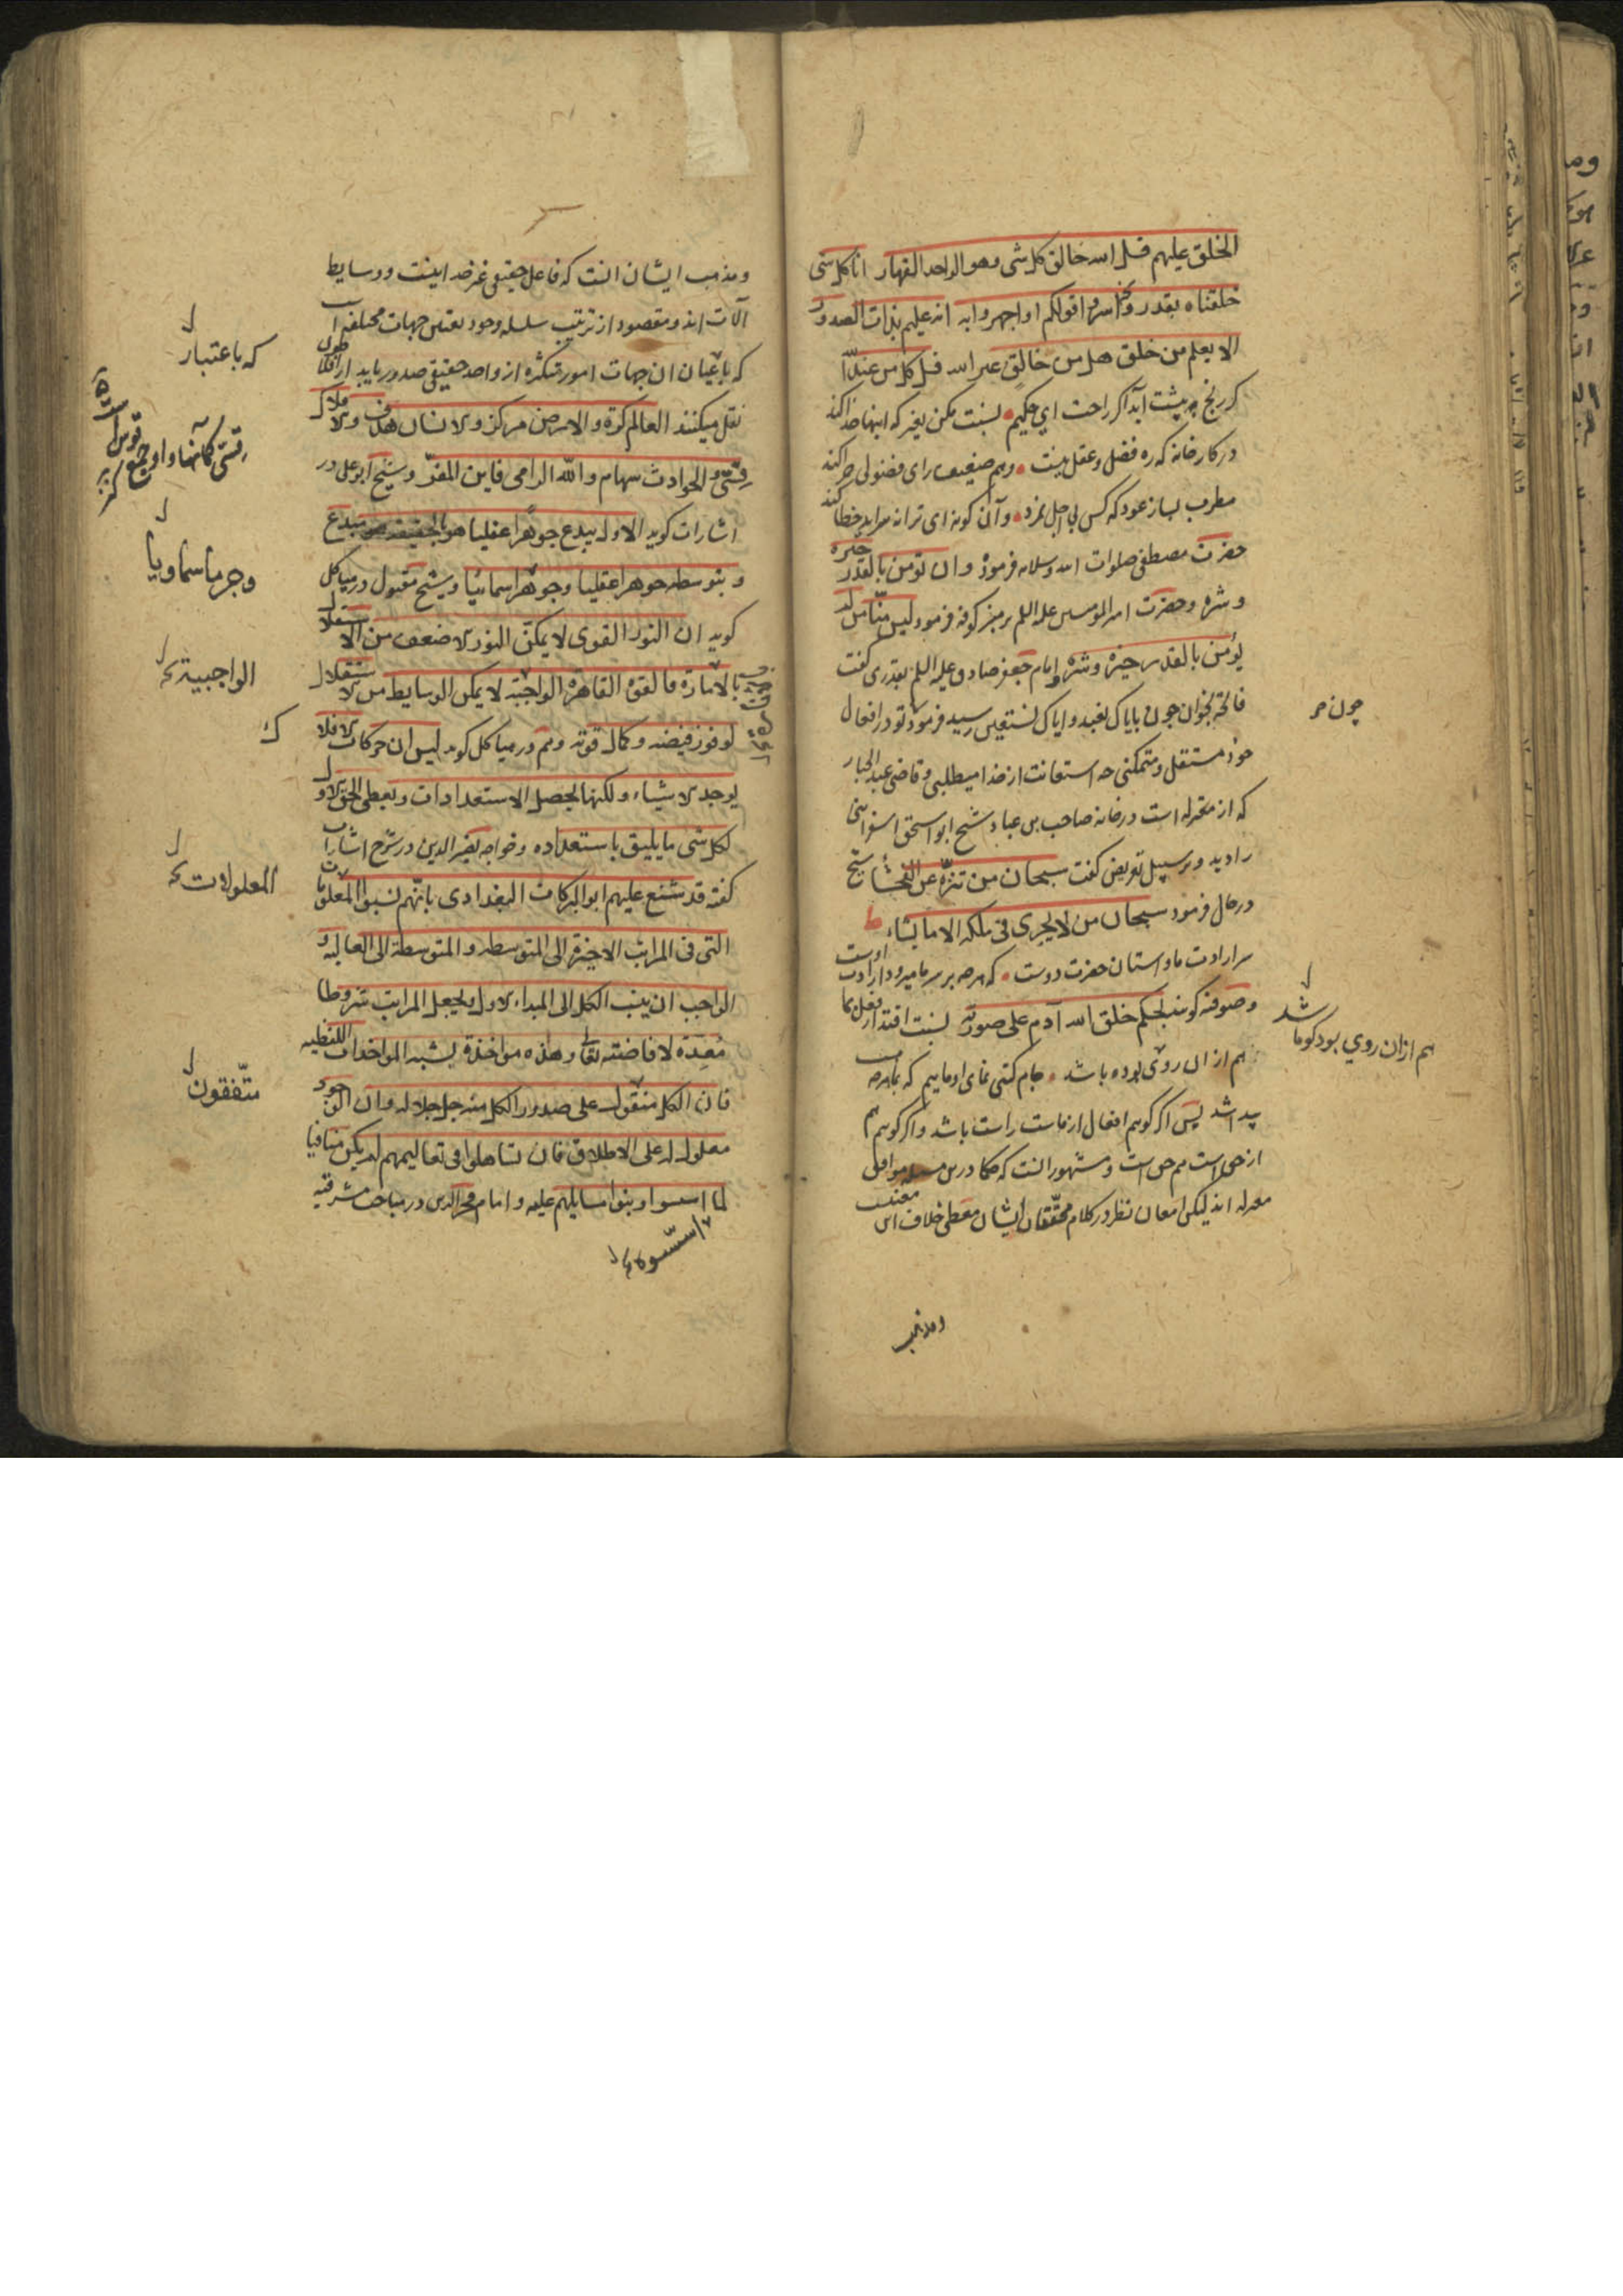 الخلق علیهم قل الله خالق کل شی وهو الواحد القهار انا کل شی
خلقناه بقدر واسروا قولکم او اجهروا به انه علیم بذات الصدور
الا یعلم من خلق هل من خالق غیر الله قل کل من عند الله
کر رنج پیشت آید اکر راحت ای حکیم نسبت مکن بغیر که اینها خدا کند
در کارخانه که ره فضل و عقل نیست وهم ضعیف رای فضولی چرا کند
مطرب بساز عود که کس بی اجل نمرد وآن کو نه این ترانه سراید خطا کند
حضرت مصطفی صلوات الله وسلامه فرموذ وان تؤمن بالقدر خیره
وشره وحضرت امیر المومنین علیه السلم بر منبر کوفه فرمود لیس منّا من لم
یؤمن بالقدر خیره وشره وامام جعفر صادق علیه السلم بقدری کفت
فاتحه بخوان چون بایاک نعبد وایاک نستعین رسید فرمود تو در افعال
خود مستقل ومتمکنی چه استعانت از خدا میطلبی وقاضی عبد الجبار
که از معتزله است در خانه صاحب بن عباد شیخ ابو اسحق اسفراینی
را دید وبر سبیل تعریض کفت سبحان من تنزّه عن الفحشاء شیخ
در حال فرمود سبحان من لا یجری فی ملکه الا ما یشاء
سر ارادت ما واستان حضرت دوست که هرچه بر سر ما میرود ارادت اوست
وصوفیه کویند بحکم خلق الله آدم علی صورته نسبت اقتدار فعل بما
هم از ان روی بوده باشد جام کیتی نمای او ماییم که بما هرچه هست
پیدا شد پس اکر کویم افعال از ماست راست باشد واکر کویم هم
از حق است هم حق است ومشهور انست که حکما درین مسله موافق
معتزله اند لیکن امعان نظر در کلام محققان ایشان معطی خلاف این معنیست
چون
شد
هم ازان روی بود کوما
ومذهب
ومذهب ایشان انست که فاعل حقیقی غیر خدا نیست ووسایط
آلات اند ومقصود از ترتیب سلسله وجود تعیین جهات مختلفه است
که باعتبار ان جهات امور متکثره از واحد حقیقی صدور یابد از افلاطون
نقل میکنند العالم کرة والارض مرکز والانسان هدف والافلاک
قسّی والحوادث سهام والله الرامی فاین المفرّ وشیخ ابو علی در
اشارات کوید الاول یبدع جوهرا عقلیا هو بالحقیقه مبدع
وبتوسطه جوهرا عقلیا وجوهرا سمائیا وشیخ مقتول در هیاکل
کوید ان النور القوی لا یمکن النور الاضعف من الاستقلال
بالانارة فالقوة القاهرة الواجبة لا یمکن الوسایط من الاستقلال
لوفور فیضه وکمال قوته وهم در هیاکل کوید لیس ان حرکات الافلاک
یوجد الاشیاء ولکنها تحصل الاستعدادات ویعطی الحق الاول
لکل شی ما یلیق باستعداده وخواجه نصیر الدین در شرح اشارات
کفته قد شنع علیهم ابو البرکات البغدادی بانّهم نسبوا المعلولات
التی فی المراتب الاخیرة الی المتوسطه والمتوسطة الی العالیه و
الواجب ان ینسب الکل الی المبداء الاول ویجعل المراتب شروطا
مُعِدّة لافاضته تعالی وهذه مواخذة یشبه المواخذات اللفظیه
فان الکل متفقون علی صدور الکل منه جل جلاله وان الوجود
معلول له علی الاطلاق فان تساهلوا فی تعالیمهم لم یکن منافیا
لما اسسوا وبنوا مسایلهم علیه وامام فخر الدین در مباحث مشرقیه
که باعتبار
وجرما سماویا
الواجبیة
ک
المعلولات
متّفقون
اسّسوه